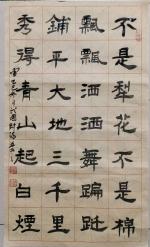 不是犁花不是棉
飄飄洒洒舞蹁跹
鋪平大地三千里
秀得青山起白煙